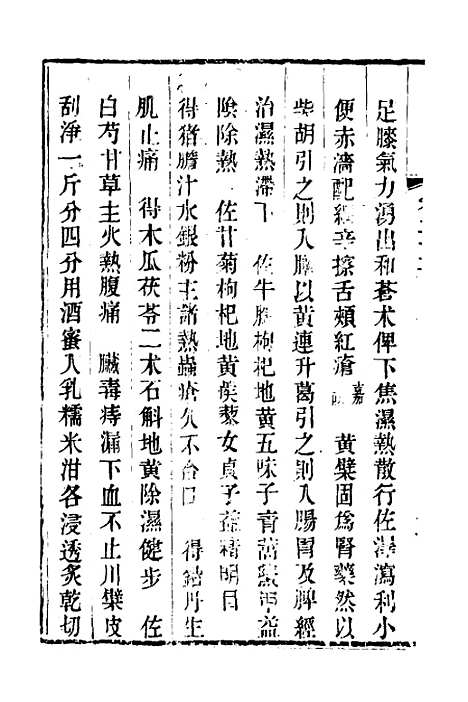 足膝氣力湧出和蒼术俾下焦濕熱散行佐澤瀉利小
便赤濇配細辛擦舌頰紅瘡 嘉 黄檗固爲腎藥然以
柴胡引之則入膽以黄連升葛引之則入腸胃及脾經
治濕熱滯下 佐牛膝枸杞地黄五味子青蒿鼈甲益
陰除熱 佐甘菊枸杞地黄蒺藜女貞子益精明目
得猪膽汁水銀粉主諸熱蟲瘡久不合口 得鉛丹生
肌止痛 得木瓜茯苓二术石斛地黄除濕健步 佐
白芍甘草主火熱腹痛 臟毒痔漏下血不止川檗皮
刮淨一斤分四分用酒蜜人乳糯米泔各浸透炙乾切